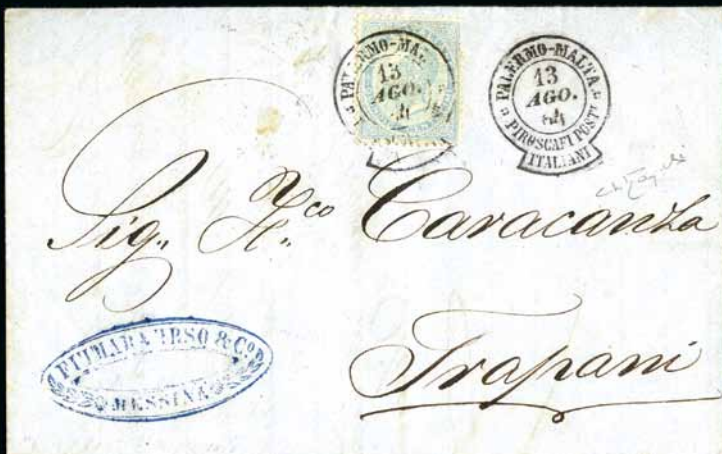 PALERMO-MA
13
AGO.
PALERMO-MALTA
13
AGO.
84
PIROSCAFI POSTI
ITALIANI
Sig. F.co Caracanza
Trapani
FIUMARA URSO & Co.
MESSINA